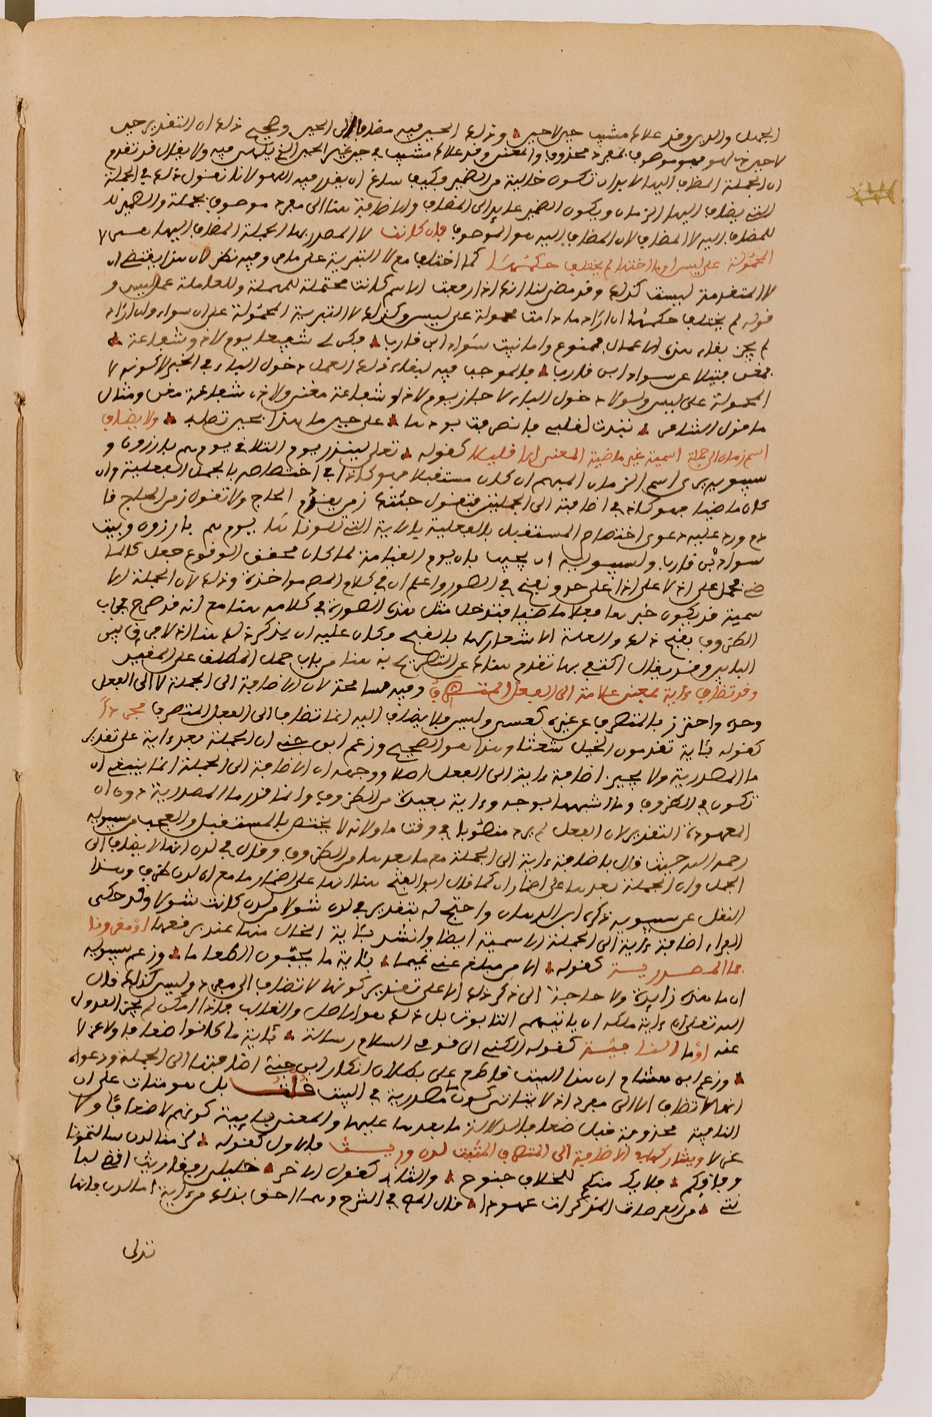 الجمل والدير وقد علاها مشيب حين لا حين وذلك الحين فيه مضافا الى الحين وصحح ذلك ان التقدير حين
لا حين فيه لهو فهو موصوف بمفرد محذوف والمعنى وقد علاها مشيب في حين غير الحين الذي يكون فيه ولا يقال قد تقدم
ان الجملة المضاف اليها لا بد ان تكون خالية من الضمير وكيف ساغ ان يقدر فيه اللهو لانا نقول ذلك في الجملة
التي يضاف اليها الزمان ويكون الضمير عايد الى المضاف والاضافة هنا الى مفرد موصوف بجملة والضمير
للمضاف اليه لا المضاف لان المضاف اليه هو الموصوف فان كانت لا المصدر بها الجملة المضاف اليها بمعنى لا
المحمولة على ليس او ما اختها لم يختلف حكمهما كما اختلف مع لا التبرية على ما مر وفيه نظر لان هذا يقتضي ان
لا المتقدمة ليست كذلك وقد مضى لنا انها اذا رفعت الاسم كانت محتملة للمهملة وللعاملة عمل ليس و
قوله لم يختلف حكمهما ان اراد ما دامتا محمولة على ليس وكذلك لا التبرية المحمولة على ان سواء وان اراد
لم يجز بقاء هذا الاعمال فممنوع واما بيت سواد ابن قارب وكن لي شفيعا يوم لا ذو شفاعة
بمغن فتيلا عن سواد ابن قارب فالموجب فيه لبقاء ذلك العمل دخول الباء في الخبر لا كونه لا
المحمولة على ليس ولولا دخول الباء لا جاز يوم لا ذو شفاعة مغن ولا ذا شفاعة مغن ومثال
ما قول الشاعر تبدت لقلبي فانصرفت بودها على حين ما هذا بحين تصابى ولا يضاف
اسم زمان الى جملة اسمية غير ماضية المعنى الا قليلا كقوله تعلى لينذر يوم التلاف يوم هم بارزون و
سيبويه يرى اسم الزمان المبهم ان كان مستقبلا فهو كاذا في اختصاصه بالجمل الفعلية وان
كان ماضيا فهو كاذ في اضافته الى الجملتين فتقول جئتك زمن يقدم الحاج ولا تقول زمن الحاج قا
دم ورد عليه دعوى اختصاص المستقبل بالفعلية بالاية التي تلونا ها يوم هم بارزون وبيت
سواد بن قارب ولسيبويه ان يجيب بان يوم القيامة لما كان محقق الوقوع جعل كالما
ضي فحمل على اذ لا على اذا على حد ونفخ في الصور واعلم ان في كلام المصـ مواخذة وذلك لان الجملة الا
سمية قد يكون خبرها فعلا ماضيا فتدخل مثل هذه الصورة في كلامه هنا مع انه قد صرح في باب
الظروف بقبح ذلك والعلة الاشعار بها بالقبح وكان عليه ان يذكر ذلك هنا اذ لا مرى قاس
الباب وقد يقال اكتفى بما تقدم هناك عن التصريح به هنا من باب حمل المطلق على المقيد
وقد تضاف ءاية بمعنى علامة الى الفعل المتصرف وفيه مسامحة لان الاضافة الى الجملة لا الى الفعل
وحده واحترز بالمتصرف عن غيره كعسى وليس فلا يضاف اليه انما تضاف الى الفعل المتصرف مجردا
كقوله بئاية تقدمون الخيل شعثا وهذا هو الصحيح وزعم ابن جنى ان الجملة بعد ءاية على تقدير
ما المصدرية ولا يجيز اضافة ءاية الى الفعل اصلا ووجهه ان الاضافة الى الجملة انما ينبغي ان
تكون في الظروف وما اشبهها بوجه وءاية بعيدة من الظروف وانما قدر ما المصدرية دون ان
المعهودة التقدير لان الفعل لم يرد منصوبا في وقت ما ولانه لا يختص بالمستقبل والعجب من سيبويه
رحمه الله حيث قال باضافة ءاية الى الجملة مع ما بعدها من الظروف وقال في لدن انها لا يضاف الى
الجمل وان الجملة بعدها على اضمار ان كما قال ابو الفتح هنا انها على اضمار ما مع ان لدن ظرف وهذا
النقل عن سيبويه ذكره ابن الدهان واحتج له بتقديره في لدن شولا من لدن كانت شولا وقد حكى
الفراء اضافة ءاية الى الجملة الاسمية ايضا وانشد بئاية الخال منها عند برقعها او مقرونا
بما المصدرية كقوله الا من مبلغ عني تميما بئاية ما يحبون الطعاما وزعم سيبويه
ان ما هذه زايدة ولا حاجة الى ذكر ذلك الا على تقدير كونها لا تضاف الى مفرد وليس كذلك قال
الله تعلى ان ءاية ملكه ان ياتيكم التابوت بل ذلك هو الاصل والغالب فاذا امكن لم يجز العدول
عنه او ما النافية كقوله الكنى الى قومي السلام رسالة بئاية ما كانوا ضعافا ولا عزلا
وزعم ابن هشام ان هذا البيت قاطع على بطلان انكار ابن جنى اضافتها الى الجملة ودعواه
انها لا تضاف الا الى مفرد اذ لا يتاتى كون مصدرية في البيت قلت بل هو متات على ان
النافية محذوفة قبل ضعافا لدلالة ما بعدها عليها والمعنى بئاية كونهم لا ضعافا ولا
عزلا ويشاركها في الاضافة الى المتصرف المثبت لدن وريث فالاول كقوله من لدن سالتمونا
وفاقكم فلا يك منكم للخلاف جنوح والثاني كقول الاخر خليلي رفقا ريث اقضي لبا
نتي من العرصات المذكرات عهودا قال المصـ في الشرح وهما احق بذلك من ءاية اما لدن فانها
تدل